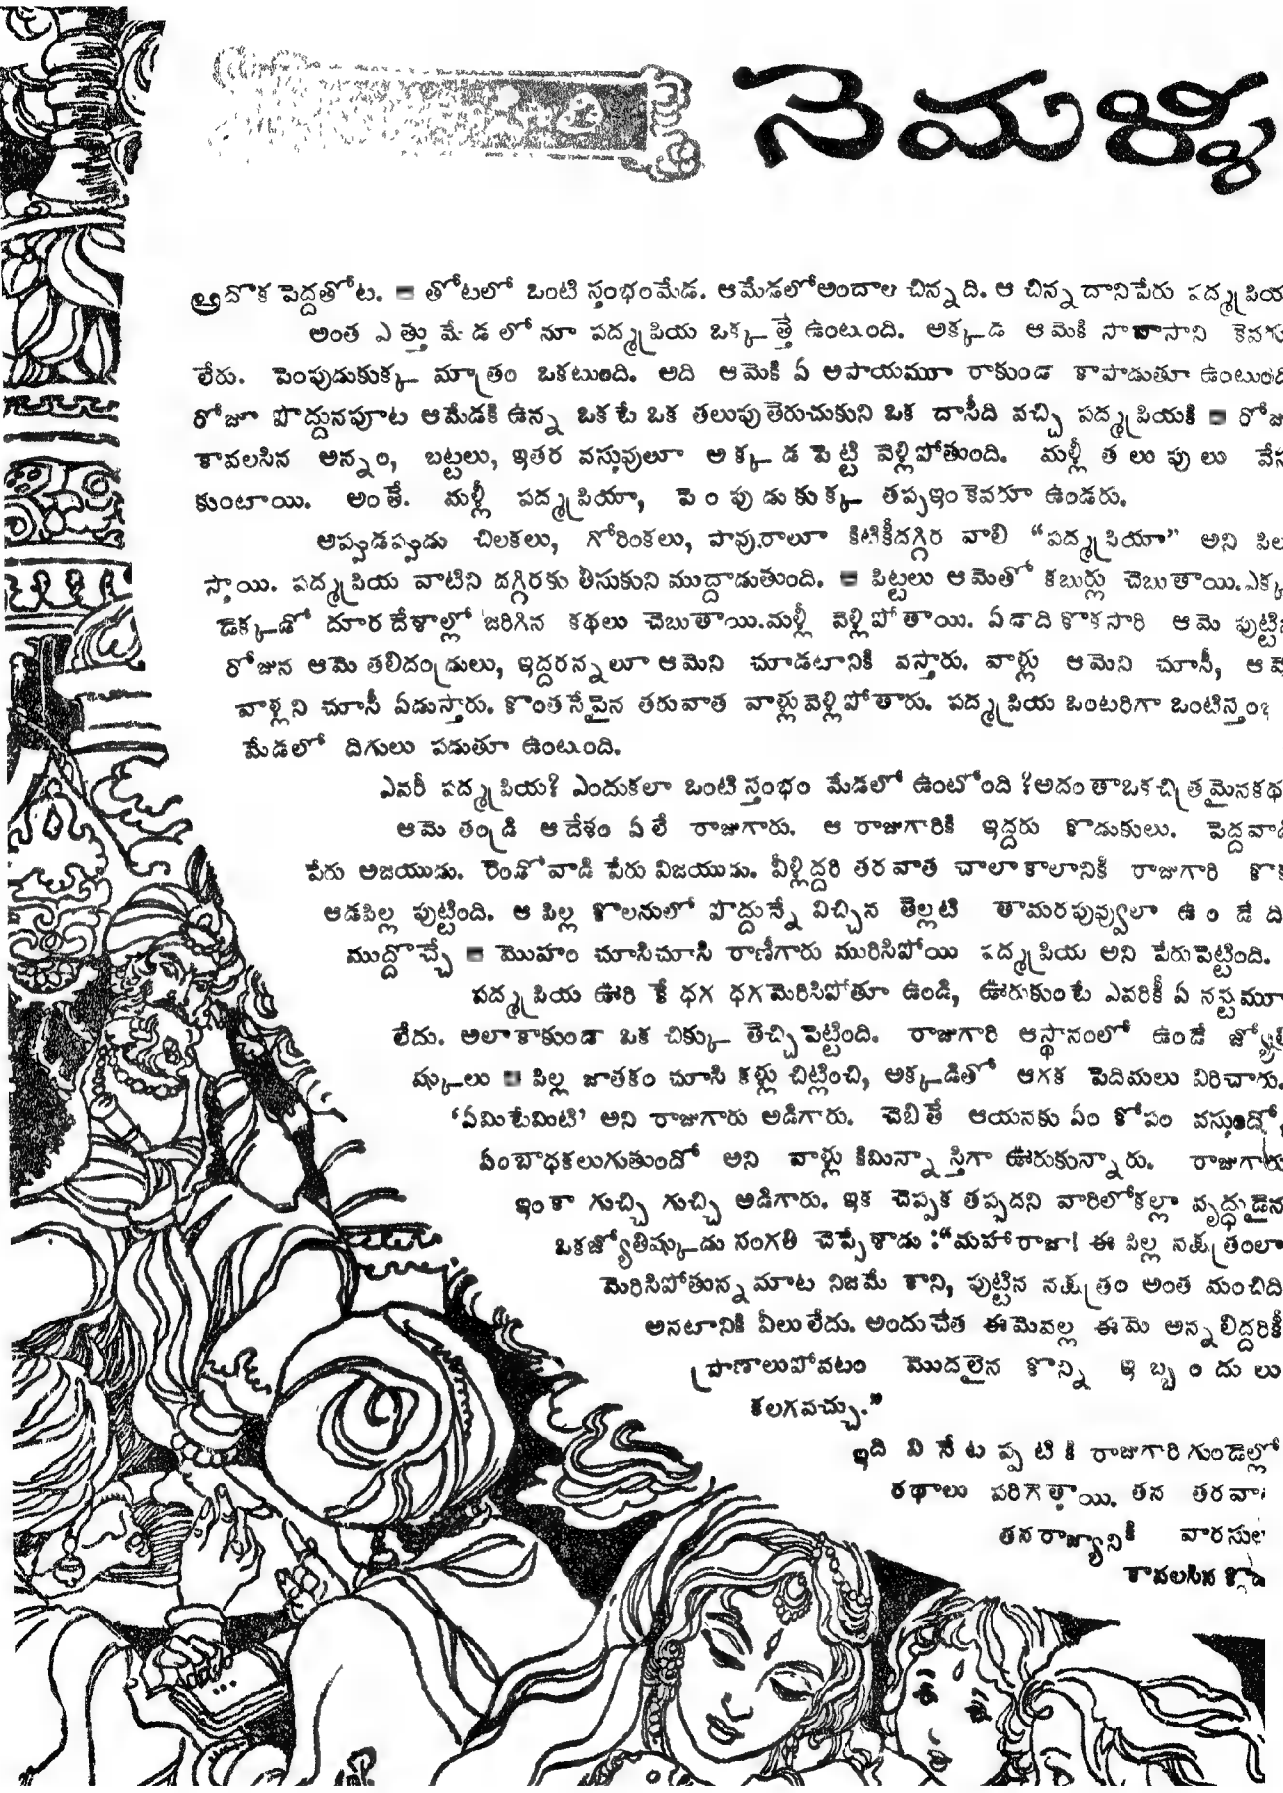 నెమళ్ళ
అదొక పెద్దతోట. తోటలో ఒంటి స్తంభంమేడ. ఆమేడలోఅందాల చిన్నది. ఆ చిన్నదానిపేరు పద్మప్రియ
అంత ఎత్తు మేడలోనూ పద్మప్రియ ఒక్కత్తే ఉంటుంది. అక్కడ ఆమెకి సావాసాని కెవరు
లేరు. పెంపుడుకుక్క మాత్రం ఒకటుంది. అది ఆమెకి ఏ అపాయమూ రాకుండా కాపాడుతూ ఉంటుంది
రోజూ పొద్దునపూట ఆమేడకి ఉన్న ఒకటే ఒక తలుపుతెరుచుకుని ఒక దాసీది వచ్చి పద్మప్రియకి రోజు
కావలసిన అన్నం, బట్టలు, ఇతర వస్తువులూ అక్కడ పెట్టి వెళ్లిపోతుంది. మళ్లీ తలుపులు వేసు
కుంటాయి. అంతే. మళ్లీ పద్మప్రియా, పెంపుడుకుక్క తప్పఇంకెవరూ ఉండరు.
అప్పుడప్పుడు చిలకలు, గోరింకలు, పావురాలూ కిటికీదగ్గిర వాలి “పద్మప్రియా” అని పిల
స్తాయి. పద్మప్రియ వాటిని దగ్గిరకు తీసుకుని ముద్దాడుతుంది. పిట్టలు ఆమెతో కబుర్లు చెబుతాయి.ఎక్క
డెక్కడో దూరదేశాల్లో జరిగిన కథలు చెబుతాయి.మళ్లీ వెళ్లిపోతాయి. ఏడాదికొకసారి ఆమె పుట్టిన
రోజున ఆమె తలిదండ్రులు, ఇద్దరన్నలూ ఆమెని చూడటానికి వస్తారు. వాళ్లు ఆమెని చూసీ, ఆమె
వాళ్లని చూసీ ఏడుస్తారు. కొంతసేపైన తరువాత వాళ్లువెళ్లిపోతారు. పద్మప్రియ ఒంటరిగా ఒంటిస్తంభ
మేడలో దిగులు పడుతూ ఉంటుంది.
ఎవరీ పద్మప్రియ? ఎందుకలా ఒంటి స్తంభం మేడలో ఉంటోంది?అదంతాఒకచిత్రమైనకథ
ఆమె తండ్రి ఆదేశం ఏలే రాజుగారు. ఆ రాజుగారికి ఇద్దరు కొడుకులు. పెద్దవాడి
పేరు అజయుడు. రెండోవాడి పేరు విజయుడు. వీళ్లిద్దరి తరవాత చాలాకాలానికి రాజుగారి కొక
ఆడపిల్ల పుట్టింది. ఆ పిల్ల కొలనులో పొద్దున్నే విచ్చిన తెల్లటి తామరపువ్వులా ఉండేది
ముద్దొచ్చే మొహం చూసిచూసి రాణీగారు మురిసిపోయి పద్మప్రియ అని పేరుపెట్టింది.
పద్మప్రియ ఊరికే ధగధగమెరిసిపోతూ ఉండి, ఊరుకుంటే ఎవరికీ ఏ నష్టమూ
లేదు. అలాకాకుండా ఒక చిక్కు తెచ్చిపెట్టింది. రాజుగారి ఆస్థానంలో ఉండే జ్యోతి
ష్కులు పిల్ల జాతకం చూసి కళ్లు చిట్లించి, అక్కడితో ఆగక పెదిమలు విరిచారు.
‘ఏమిటేమిటి’ అని రాజుగారు అడిగారు. చెబితే ఆయనకు ఏం కోపం వస్తుందో,
ఏంబాధకలుగుతుందో అని వాళ్లు కిమిన్నాస్తిగా ఊరుకున్నారు. రాజుగారు
ఇంకా గుచ్చి గుచ్చి అడిగారు. ఇక చెప్పక తప్పదని వారిలోకల్లా వృద్ధుడైన
ఒకజ్యోతిష్కుడు సంగతి చెప్పేశాడు :“మహారాజా! ఈ పిల్ల నక్షత్రంలా
మెరిసిపోతున్నమాట నిజమే కాని, పుట్టిన నక్షత్రం అంత మంచిది
అనటానికి వీలులేదు. అందుచేత ఈమెవల్ల ఈమె అన్నలిద్దరికీ
ప్రాణాలుపోవటం మొదలైన కొన్ని ఇబ్బందులు
కలగవచ్చు.”
ఇది వినేటప్పటికి రాజుగారి గుండెల్లో
రథాలు పరిగెత్తాయి. తన తరవా
తనరాజ్యానికి వారసులు
కావలసిన